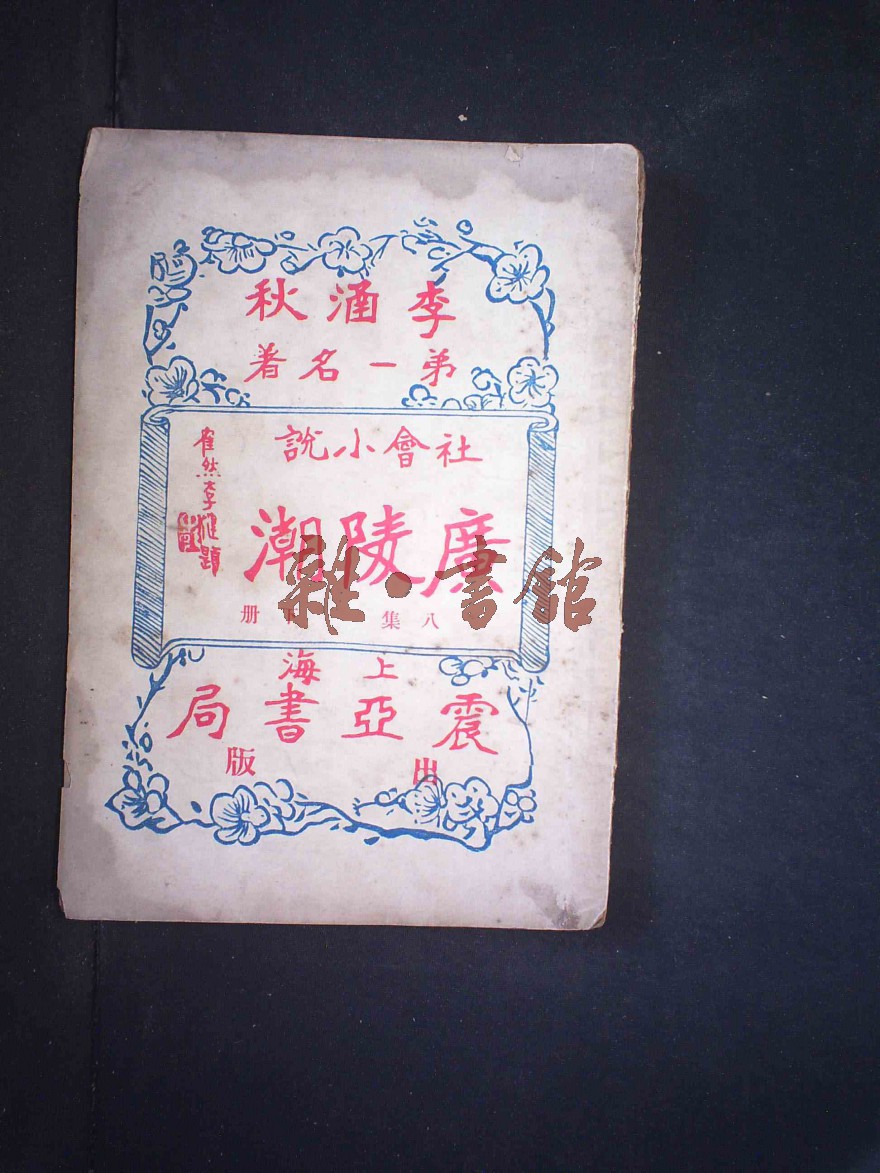 李涵秋
弟一名著
社會小説
廣陵潮
八集 下册
崔然李題
上海
震亞書局
出版
雜·書館